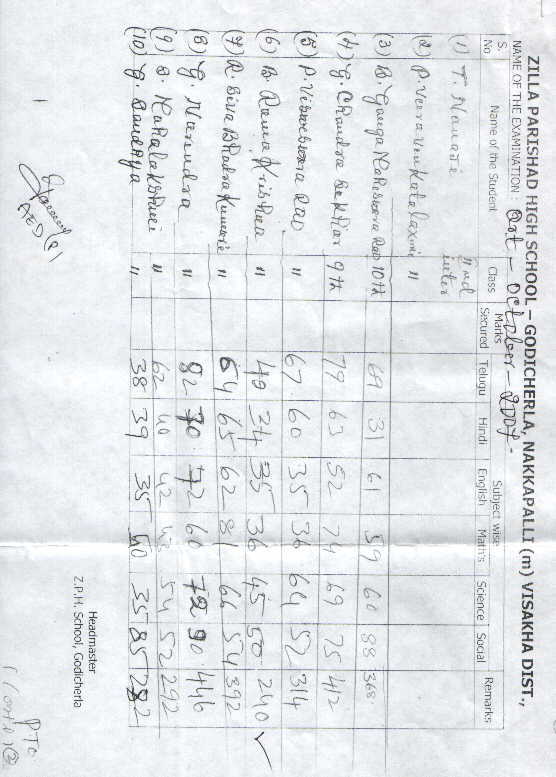 ZILLA PARISHAD HIGH SCHOOL – GODICHERLA, NAKKAPALLI (m) VISAKHA DIST.,
NAME OF THE EXAMINATION: - October - 2007 -
S. No Name of the Student Class Marks Secured Subject wise Remarks
Telugu Hindi English Math's Science Social
(1) T. IInd inter
(2) P. Veera Venkata laxmi "
(3) B. Ganga Maheswara Rao 10th 69 31 61 59 60 88 368
(4) G. Chandra Sekhar 9th 79 63 52 74 69 75 412
(5) P. Visweswara Rao " 67 60 35 36 64 52 314
(6) B. Rama Krishna " 40 24 35 36 45 50 240 ✓
(7) R. Siva Bhadra Kumari " 64 65 62 81 66 54 392
(8) G. Narendra " 82 70 72 60 72 90 446
(9) B. Mahalakshmi " 62 40 42 43 54 52 292
(10) G. Sandhya " 38 39 35 50 35 85 282
Headmaster
Z.P.H. School, Godicherla
P.T.O